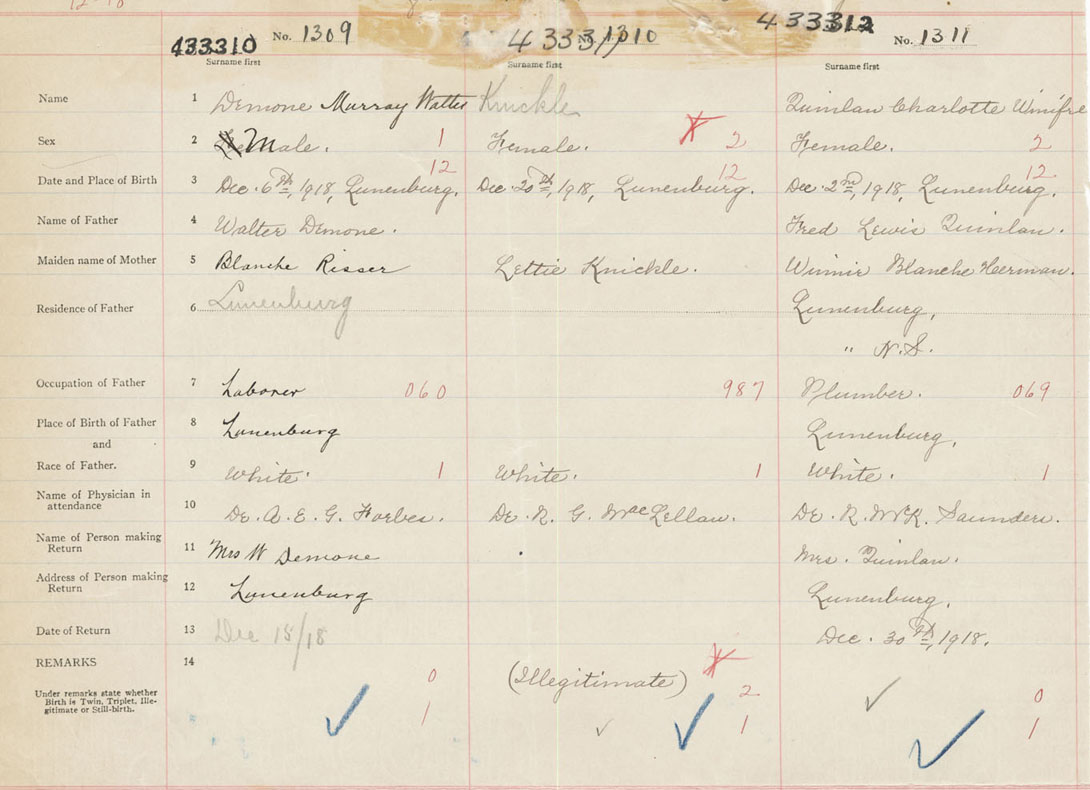 12-18
433310 No. 1309 433311 No. 1310 433312 No. 1311
Surname first Surname first Surname first
Name 1 Demone Murray Walter Knickle Quinlan Charlotte Winifre
Sex 2 Male. 1 Female. 2 Female. 2
Date and Place of Birth 3 Dec. 6th, 1918, Lunenburg. 12 Dec. 20th, 1918, Lunenburg. 12 Dec. 2nd, 1918, Lunenburg. 12
Name of Father 4 Walter Demone. Fred Lewis Quinlan.
Maiden name of Mother 5 Blanche Risser Lettie Knickle. Winnie Blanche Herman.
Residence of Father 6 Lunenburg Lunenburg,
" N.S.
Occupation of Father 7 Laborer 060 987 Plumber. 069
Place of Birth of Father 8 Lunenburg Lunenburg,
and
Race of Father. 9 White. 1 White. 1 White. 1
Name of Physician in
attendance 10 Dr. A. E. G. Forbes. Dr. R. G. MacLellan. Dr. R. McK. Saunders.
Name of Person making
Return 11 Mrs W Demone Mrs. Quinlan.
Address of Person making
Return 12 Lunenburg Lunenburg,
Date of Return 13 Dec 15/18 Dec. 30th, 1918.
REMARKS 14 0 (Illegitimate) 2 0
Under remarks state whether
Birth is Twin, Triplet, Ille-
gitimate or Still-birth. 1 1 1